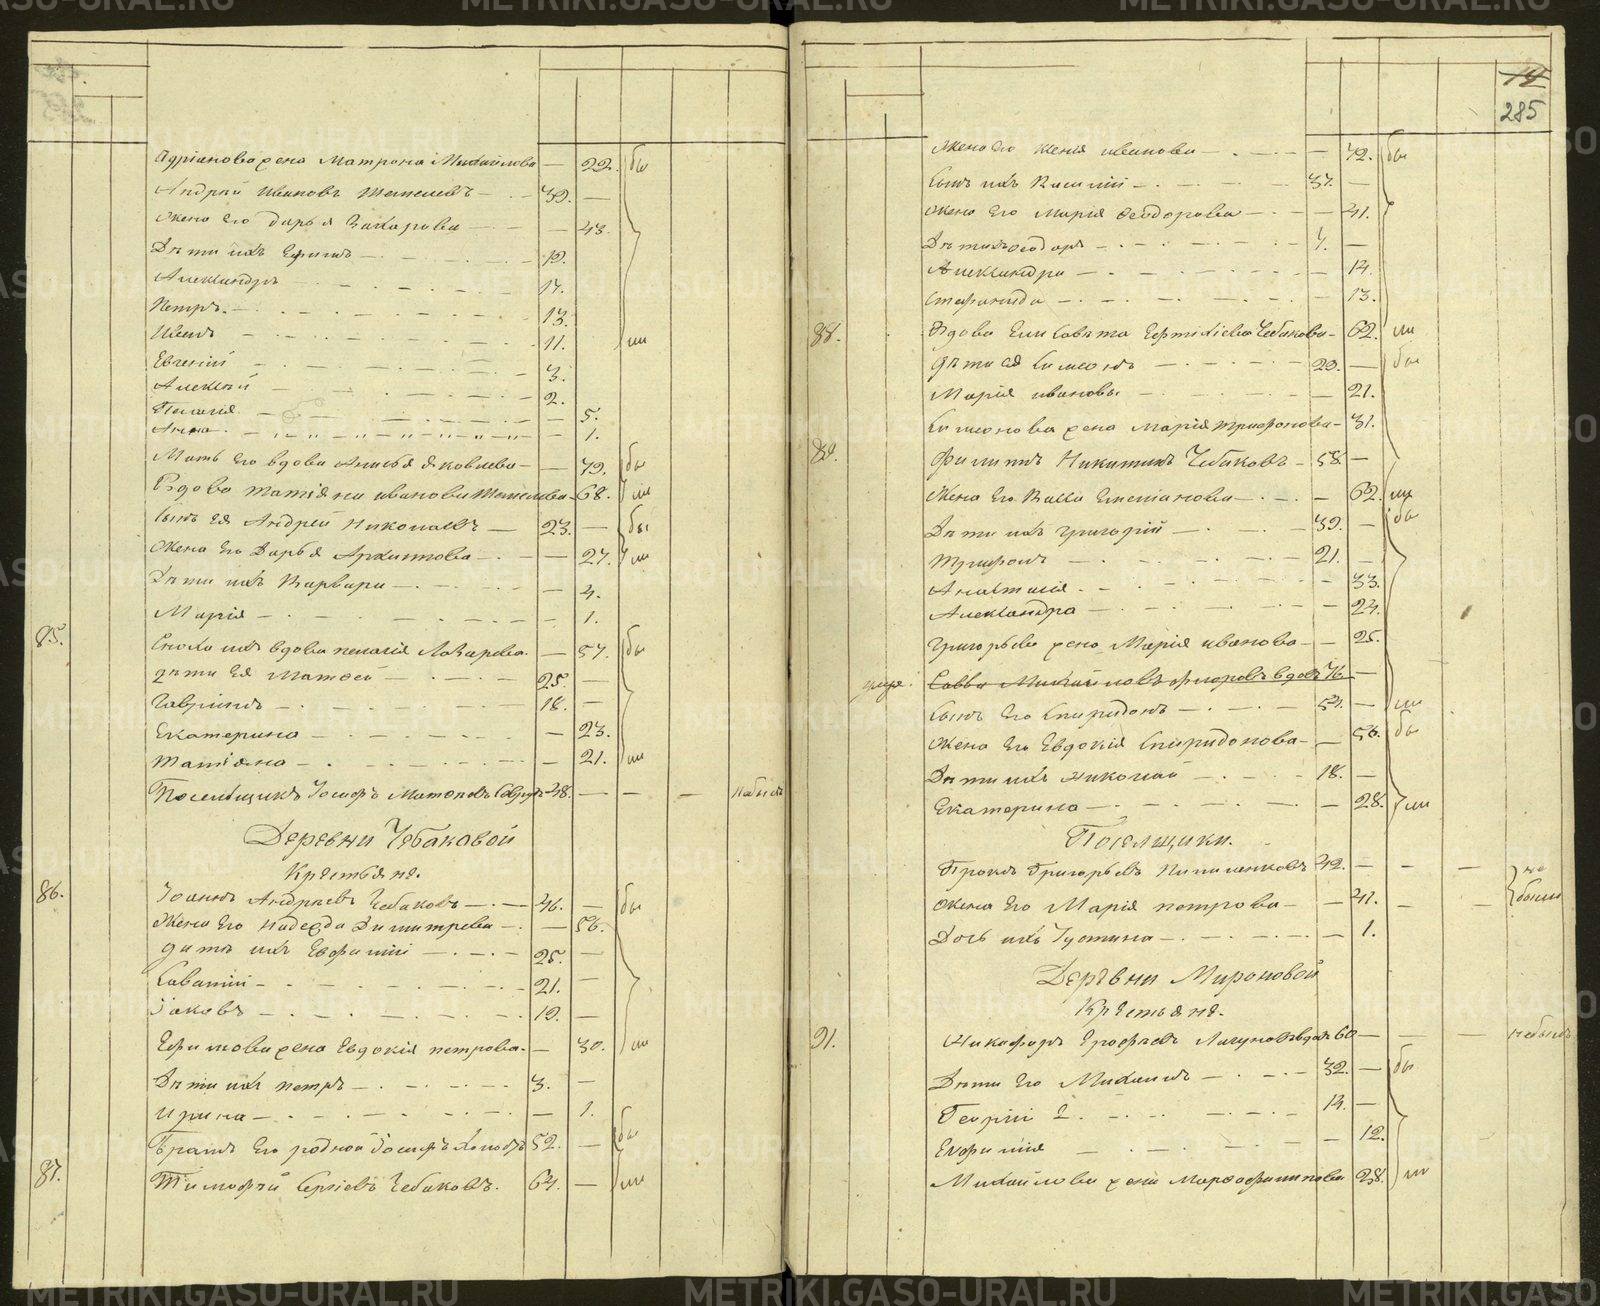 Адріанова жена Матрона Михайлова — 22. бы
Андрей Ивановъ 39. —
Жена Его Дарья Захарова — 43.
Дѣти ихъ Ефимъ — 19.
Александръ 17.
Петръ. 13.
Иванъ 11. ли
Евгеній 3.
Алексѣй 2.
Пелагія 5.
Анна 1.
Мать Его вдова Анисья Яковлева — 79. бы
Вдова Татіяна Иванова 68. ли
Сынъ Ея Андрей Николаевъ — 23. — бы
Жена Его Дарья Архипова — 27. ли
Дѣти ихъ Варвара — 4.
Марія — 1.
85.
Сноха ихъ вдова Пелагія Лазарева — 57. бы
Дѣти Ея Матвей — 25. —
Гавріилъ — 18. —
Екатерина — 23.
Татіяна — 21. ли
Поселщикъ Іосифъ 48. — — — небылъ
Деревни Чебаковой
Крестьяне.
86.
Іоаннъ Андреевъ Чебаковъ — 46. — бы
Жена Его Надежда Димитрева — 56.
Дети ихъ Евфимій — 25. —
Саватій — 21. —
Іаковъ — 19. —
Ефимова жена Евдокія Петрова — 30. ли
Дѣти ихъ Петръ — 3. —
Ирина — 1.
Братъ Его родной Іосифъ 52. — бы
87.
Тимофей Сергіевъ Чебаковъ. 64. — ли
14
285
Жена Его Ксенія Иванова — 72. бы
Сынъ ихъ Василій — 37. —
Жена Его Марія Феодорова — 41.
Дѣти ихъ Феодоръ — 7. —
Александра — 14.
Степанида — 13.
88.
Вдова Елисавета Евтихіева Чебакова — 62. ли
Дѣти Ея Симеонъ — 29. — бы
Марія Иванова — 21.
Симеонова жена Марія Трифонова — 31.
89.
Филиппъ Никитинъ Чебаковъ — 58. —
Жена Его Васса Емелianова — 62. ли
Дѣти ихъ Григорій — 39. — бы
Трифонъ — 21. —
Анастасія 33.
Александра — 24.
Григорьева жена Марія Иванова — 25.
Савва Михайловъ вдовъ 76 —
Сынъ Его Спиридонъ — 54. — ли
Жена Его Евдокія Спиридонова — 56. бы
Дѣти ихъ Николай — 18. —
Екатерина — 28. ли
Поселщики.
Проклъ Григорьевъ 42. — — — не
были
Жена Его Марія Петрова — 41. — —
Дочь ихъ Іустина — 1.
Деревни Мироновой
Крестьяне.
91.
Никифоръ Ерофеевъ вдовъ 60 — — — небылъ
Дѣти Его Михаилъ — 32. — бы
Георгій 2. 14. —
Евфимія — 12.
Михайлова жена Марфа Филиппова 28. ли
METRIKI.GASO-URAL.RU